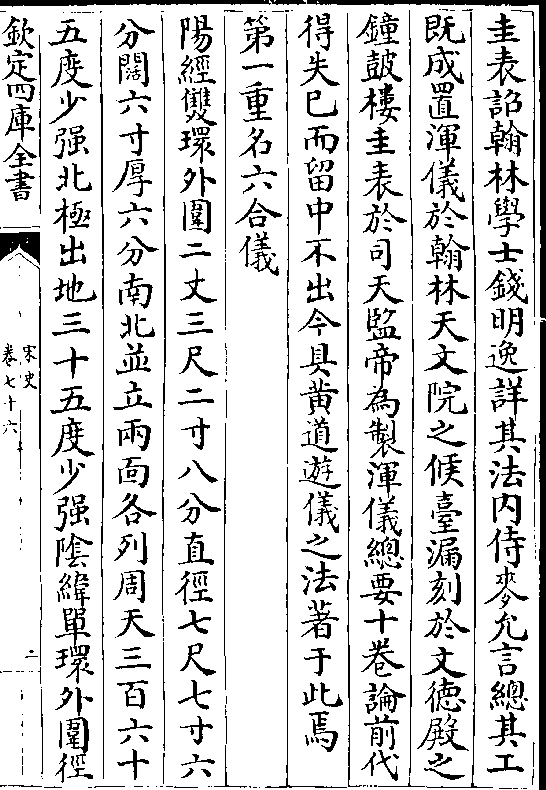 圭表詔翰林學士錢明逸詳其法内侍麥允言總其工
既成置渾儀於翰林天文院之候臺漏刻於文徳殿之
鐘鼔樓圭表於司天監帝為製渾儀總要十卷論前代
得失已而留中不出今具黄道遊儀之法著于此焉
第一重名六合儀
陽經雙環外圍二丈三尺二寸八分直徑七尺七寸六
分闊六寸厚六分南北並立兩面各列周天三百六十
五度少强北極出地三十五度少强陰緯單環外圍徑
欽定四庫全書
宋史
卷七十六
二